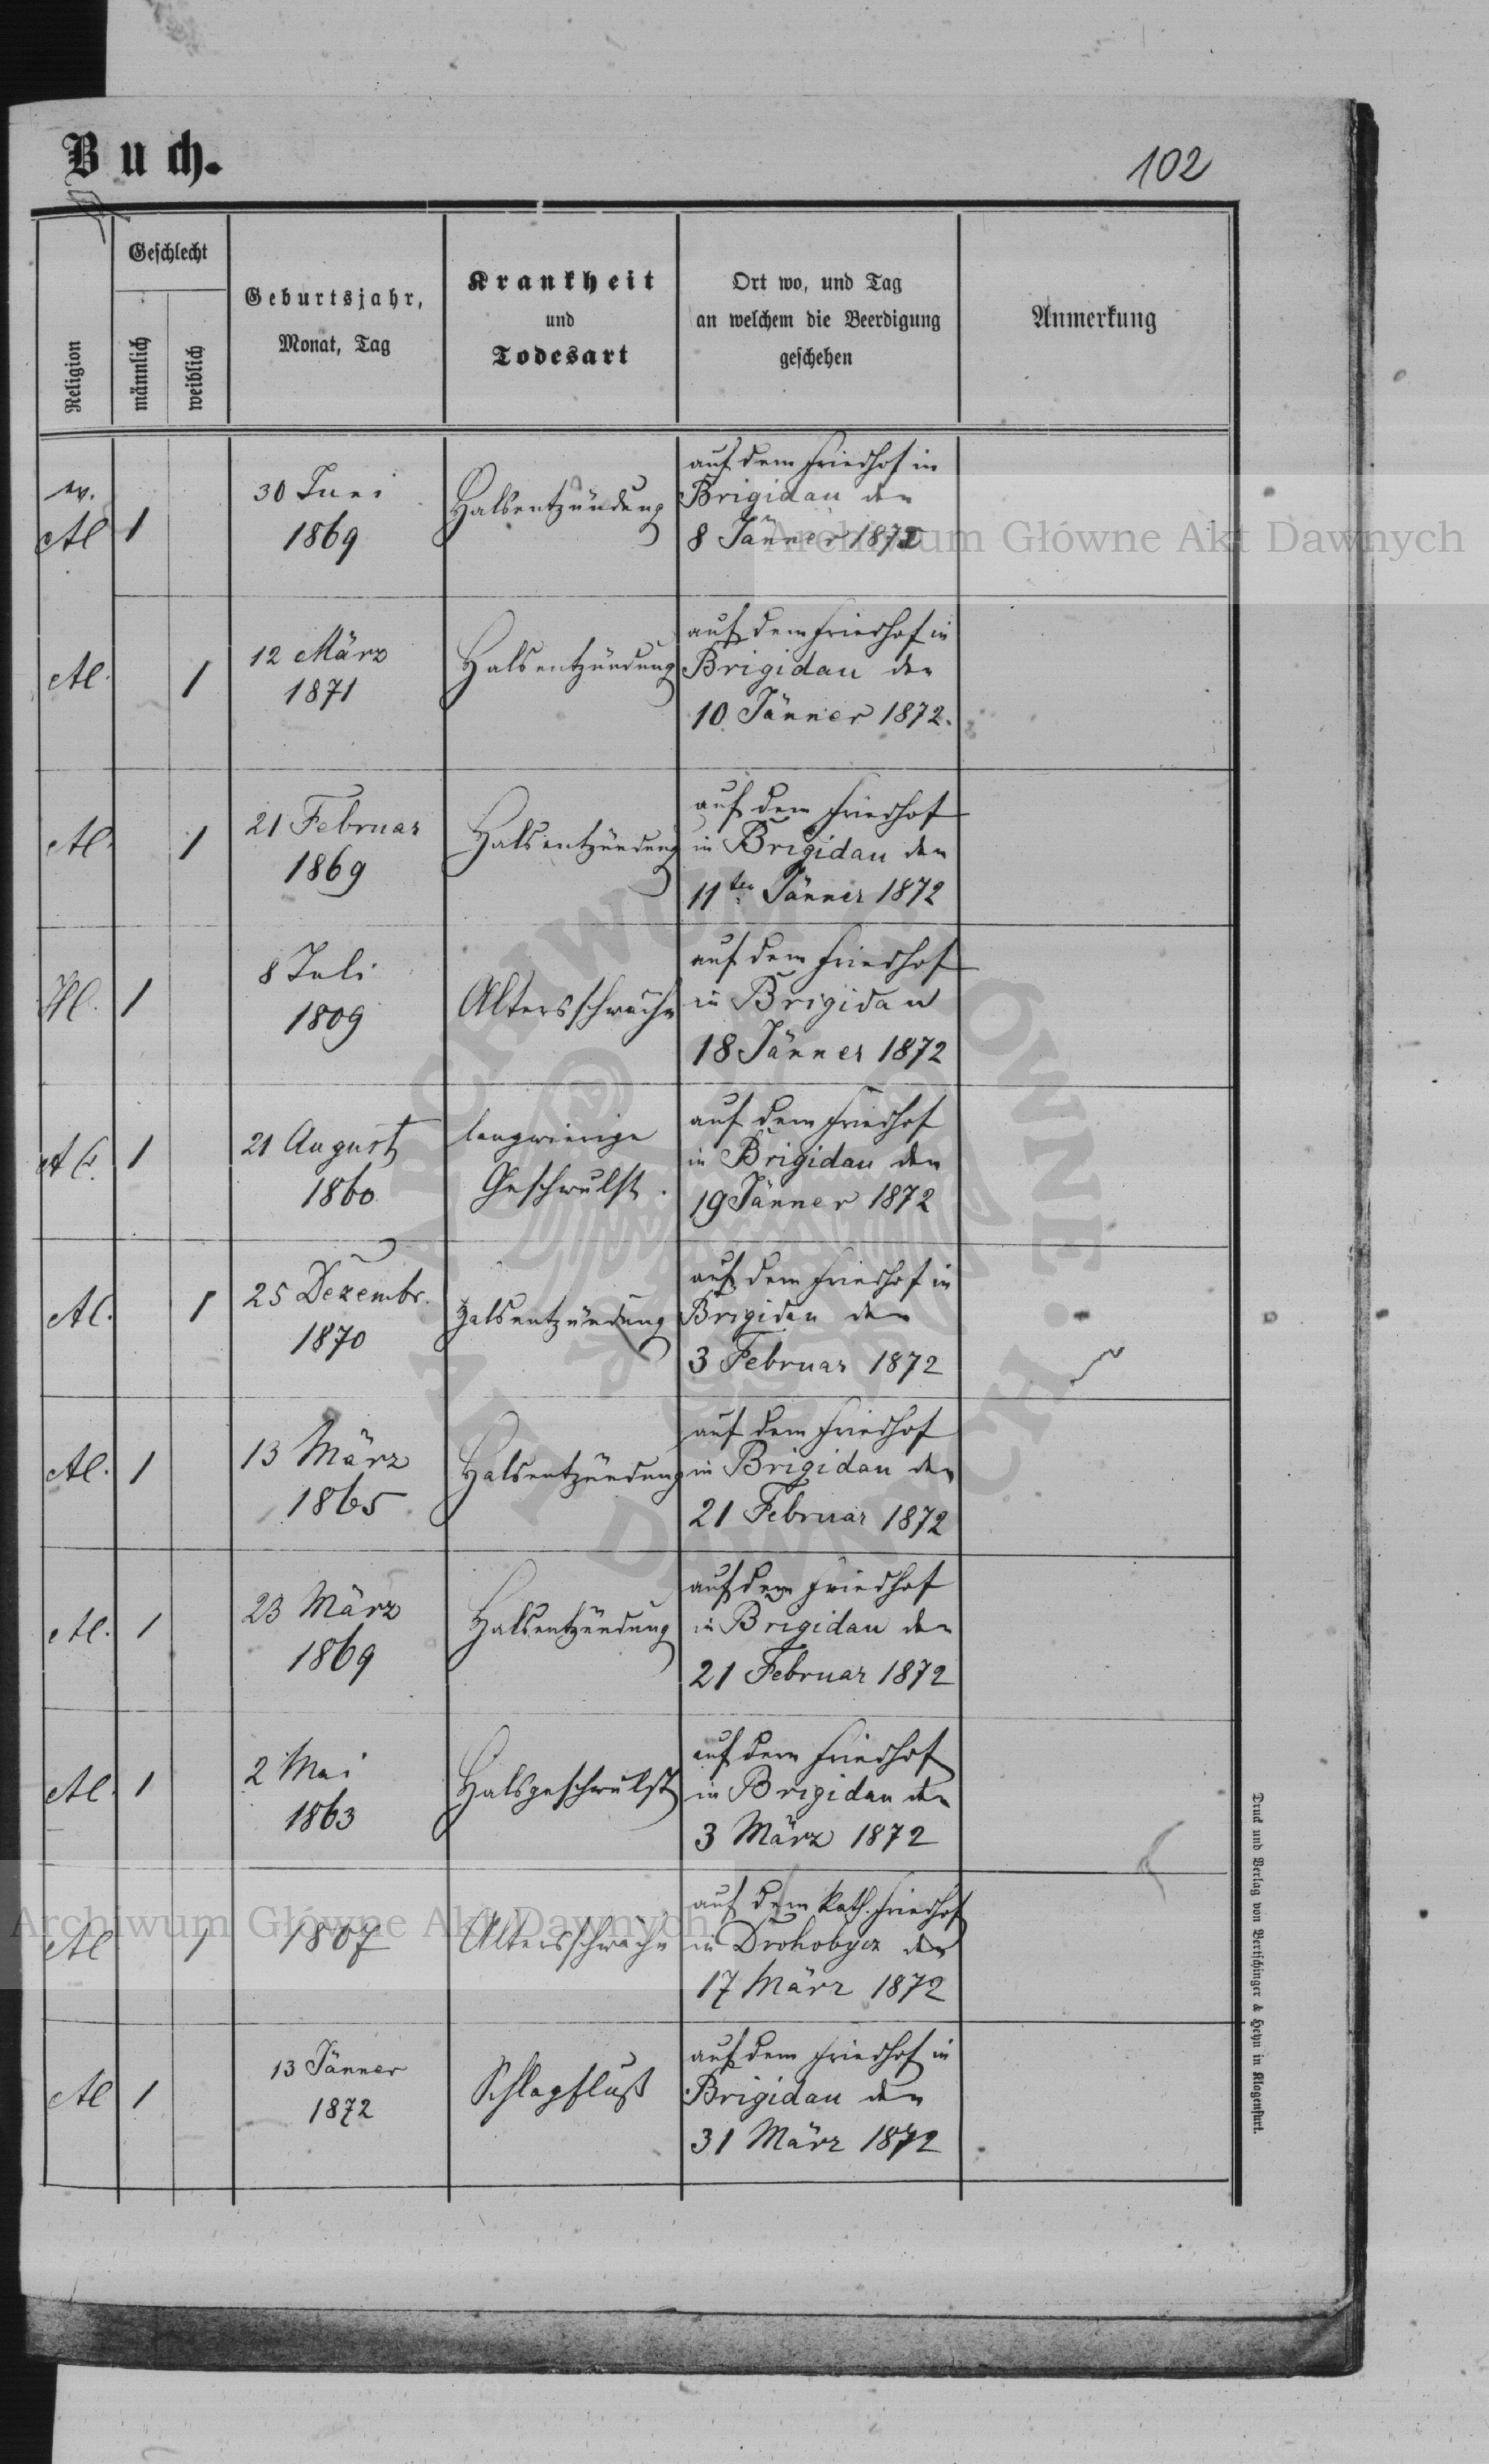 Buch.
102
Religion
Geschlecht
männlich
weiblich
Geburtsjahr,
Monat, Tag
Krankheit
und
Todesart
Ort wo, und Tag
an welchem die Beerdigung
geschehen
Anmerkung
ev.
Al
1
30 Juni
1869
Halsentzündung
auf dem Friedhof in
Brigidau den
8 Jänner 1872
Al.
1
12 März
1871
Halsentzündung
auf dem Friedhof in
Brigidau den
10 Jänner 1872.
Al.
1
21 Februar
1869
Halsentzündung
auf dem Friedhof
in Brigidau den
11ten Jänner 1872
1
8 Juli
1809
Altersschwäche
auf dem Friedhof
in Brigidau
18 Jänner 1872
1
21 August
1860
langwierige
Geschwulst.
auf dem Friedhof
in Brigidau den
19 Jänner 1872
Al.
1
25 Dezembr.
1870
Halsentzündung
auf dem Friedhof in
Brigidau den
3 Februar 1872
Al.
1
13 März
1865
Halsentzündung
auf dem Friedhof
in Brigidau den
21 Februar 1872
Al.
1
23 März
1869
Halsentzündung
auf dem Friedhof
in Brigidau den
21 Februar 1872
Al.
1
2 Mai
1863
Halsgeschwulst
auf dem Friedhof
in Brigidau den
3 März 1872
Al
1
1807
Altersschwäche
auf dem kath. Friedhof
in Drohobycz den
17 März 1872
Al
1
13 Jänner
1872
Schlagfluß
auf dem Friedhof in
Brigidau den
31 März 1872
Druck und Verlag von Bertschinger & Heyn in Klagenfurt.
Archiwum Główne Akt Dawnych
Archiwum Główne Akt Dawnych
ARCHIWUM GŁÓWNE AKT DAWNYCH